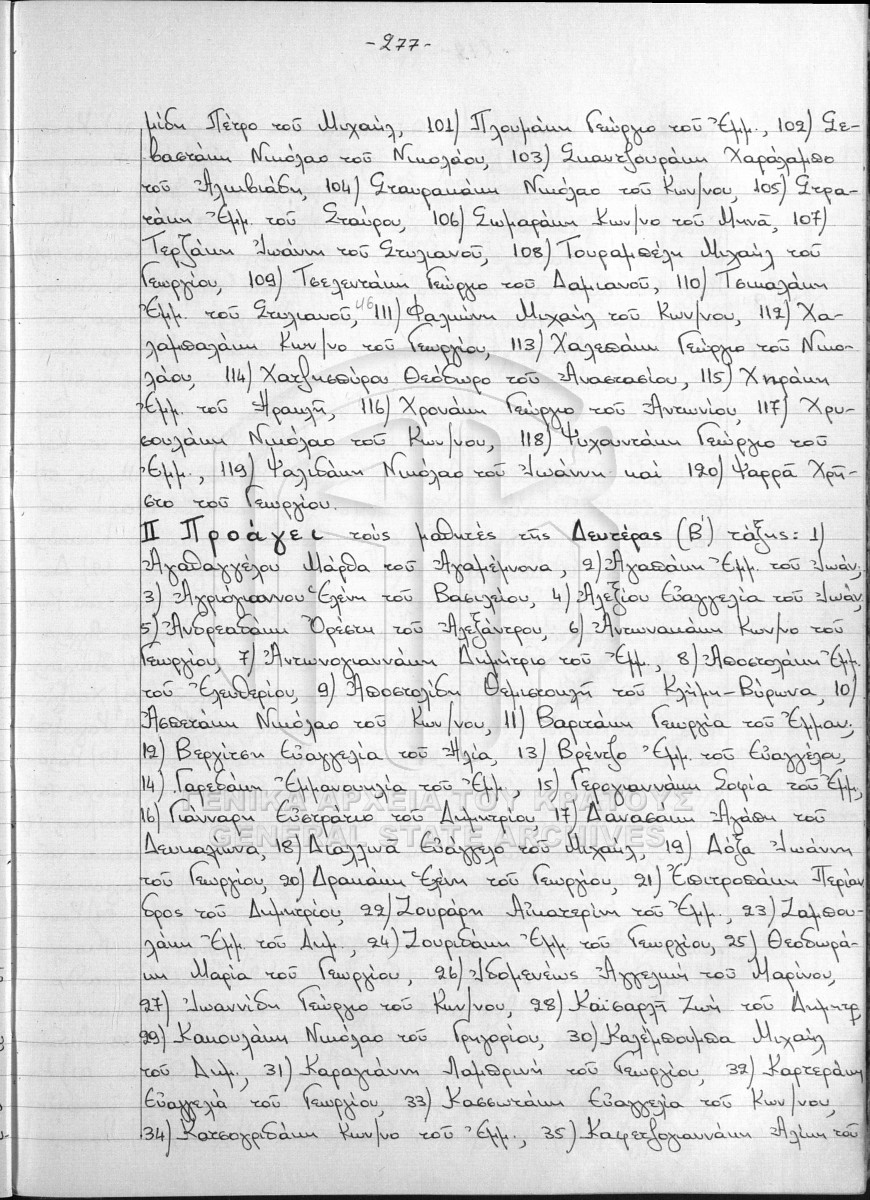 -277-
μίδη Πέτρο τοῦ Μιχαήλ, 101) Πλουμάκη Γεώργιο τοῦ Ἐμμ., 102) Σε-
βαστάκη Νικόλαο τοῦ Νικολάου, 103) Σκαντζουράκη Χαράλαμπο
τοῦ Ἀλκιβιάδη, 104) Σταυρακάκη Νικόλαο τοῦ Κων/νου, 105) Στρα-
τάκη Ἐμμ. τοῦ Σταύρου, 106) Σωμαράκη Κων/νο τοῦ Μηνᾶ, 107)
Τερζάκη Ἰωάννη τοῦ Στυλιανοῦ, 108) Τουραμπέλη Μιχαήλ τοῦ
Γεωργίου, 109) Τσελεντάκη Γεώργιο τοῦ Δαμιανοῦ, 110) Τσικαλάκη
Ἐμμ. τοῦ Στυλιανοῦ, 111) Φαλκώνη Μιχαήλ τοῦ Κων/νου, 112) Χα-
λαμπαλάκη Κων/νο τοῦ Γεωργίου, 113) Χαλεπάκη Γεώργιο τοῦ Νικο-
λάου, 114) Χατζησπύρου Θεόδωρο τοῦ Ἀναστασίου, 115) Χηράκη
Ἐμμ. τοῦ Ἡρακλῆ, 116) Χρονάκη Γεώργιο τοῦ Ἀντωνίου, 117) Χρυ-
σουλάκη Νικόλαο τοῦ Κων/νου, 118) Ψυχουντάκη Γεώργιο τοῦ
Ἐμμ., 119) Ψαλιδάκη Νικόλαο τοῦ Ἰωάννη καί 120) Ψαρρᾶ Χρῆ-
στο τοῦ Γεωργίου.
ΙΙ Προάγει τούς μαθητές τῆς Δευτέρας (Β΄) τάξης: 1)
Ἀγαθαγγέλου Μάρθα τοῦ Ἀγαμέμνονα, 2) Ἀγαπάκη Ἐμμ. τοῦ Ἰωάν,
3) Ἀγριόγιαννου Ἑλένη τοῦ Βασιλείου, 4) Ἀλεξίου Εὐαγγελία τοῦ Ἰωάν,
5) Ἀνδρεαδάκη Ὀρέστη τοῦ Ἀλεξάντρου, 6) Ἀντωνακάκη Κων/νο τοῦ
Γεωργίου, 7) Ἀντωνογιαννάκη Δημήτριο τοῦ Ἐμμ., 8) Ἀποστολάκη Ἐμμ.
τοῦ Ἐλευθερίου, 9) Ἀποστολίδη Θεμιστοκλῆ τοῦ Κλήμη-Βύρωνα, 10)
Ἀσπετάκη Νικόλαο τοῦ Κων/νου, 11) Βαριτάκη Γεωργία τοῦ Ἐμμαν.,
12) Βεργίτση Εὐαγγελία τοῦ Ἠλία, 13) Βρέντζο Ἐμμ. τοῦ Εὐαγγέλου,
14) Γαρεδάκη Ἐμμανουηλία τοῦ Ἐμμ., 15) Γερογιαννάκη Σοφία τοῦ Ἐμμ,
16) Γιάνναρη Εὐστράτιο τοῦ Δημητρίου, 17) Δανασάκη Ἀγάπη τοῦ
Δευκαλίωνα, 18) Διαλλινᾶ Εὐάγγελο τοῦ Μιχαήλ, 19) Δόξα Ἰωάννη
τοῦ Γεωργίου, 20) Δρακάκη Ἑλένη τοῦ Γεωργίου, 21) Ἐπιτροπάκη Περίαν
δρος τοῦ Δημητρίου, 22) Ζουράρη Αἰκατερίνη τοῦ Ἐμμ., 23) Ζαμπου-
λάκη Ἐμμ. τοῦ Δημ., 24) Ζουριδάκη Ἐμμ. τοῦ Γεωργίου, 25) Θεοδωρά-
κη Μαρία τοῦ Γεωργίου, 26) Ἰδομενέως Ἀγγελική τοῦ Μαρίνου,
27) Ἰωαννίδη Γεώργιο τοῦ Κων/νου, 28) Καϊσαρλῆ Ζωή τοῦ Δημητρ,
29) Κακουλάκη Νικόλαο τοῦ Γρηγορίου, 30) Καλέμπουμπα Μιχαήλ
τοῦ Δημ., 31) Καραγιάννη Λαμπρινή τοῦ Γεωργίου, 32) Καρτεράκη
Εὐαγγελία τοῦ Γεωργίου, 33) Κασσωτάκη Εὐαγγελία τοῦ Κων/νου,
34) Κατσογριδάκη Κων/νο τοῦ Ἐμμ., 35) Καφετζογιαννάκη Ἀλίκη τοῦ
ΓΕΝΙΚΑ ΑΡΧΕΙΑ ΤΟΥ ΚΡΑΤΟΥΣ
GENERAL STATE ARCHIVES